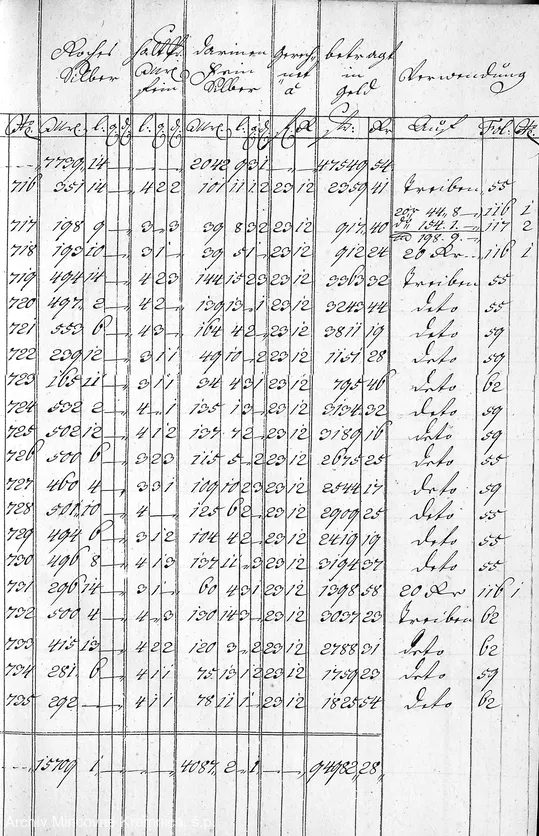 Roches halt f. darinen Gerech= betragt
Silber Marc Fein net in Verwendung
fein Silber a Geld
No. Marc. l. q. d. l. q. d. Marc. l. q. d. f. Kr fr. Kr Auf Fol. No.
7739 14 — 2042 9 3 1 — 47549 54
716 351 14 — 4 2 2 101 11 1 2 23 12 2359 41 Treiben 55
44 8 — 116 1
717 198 9 — 3 — 3 39 8 3 2 23 12 917 40 154. 1. — 117 2
198 9
718 193 10 — 3 1 — 39 5 1 — 23 12 912 24 20 Kr — 116 1
719 494 14 — 4 2 3 144 15 2 3 23 12 3363 32 Treiben 55
720 497 2 — 4 2 — 139 13 — 1 23 12 3243 44 deto 55
721 553 6 — 4 3 — 164 4 2 — 23 12 3811 19 deto 59
722 239 12 — 3 1 1 49 10 — 2 23 12 1151 28 deto 59
723 165 11 — 3 1 1 34 4 3 1 23 12 795 46 deto 62
724 532 2 — 4 — 1 135 1 3 — 23 12 3134 32 deto 59
725 502 12 — 4 1 2 137 7 2 — 23 12 3189 16 deto 59
726 500 6 — 3 2 3 115 5 — 2 23 12 2675 25 deto 55
727 460 4 — 3 3 1 109 10 2 3 23 12 2544 17 deto 59
728 501 10 — 4 — 125 6 2 — 23 12 2909 25 deto 55
729 494 6 — 3 1 2 104 4 2 — 23 12 2419 19 deto 55
730 496 8 — 4 1 3 137 11 — 3 23 12 3194 37 deto 55
731 296 14 — 3 1 — 60 4 3 1 23 12 1398 58 20 Kr 116 1
732 500 4 — 4 — 3 130 14 3 — 23 12 3037 23 Treiben 62
733 415 13 — 4 2 2 120 3 — 2 23 12 2788 31 deto 62
734 281 6 — 4 1 1 75 13 1 2 23 12 1759 23 deto 59
735 292 — 4 1 1 78 11 1 — 23 12 1825 54 deto 62
15709 1 — 4087 2 — 1 — 94982 28
Archív Mincovne Kremnica, š.p.